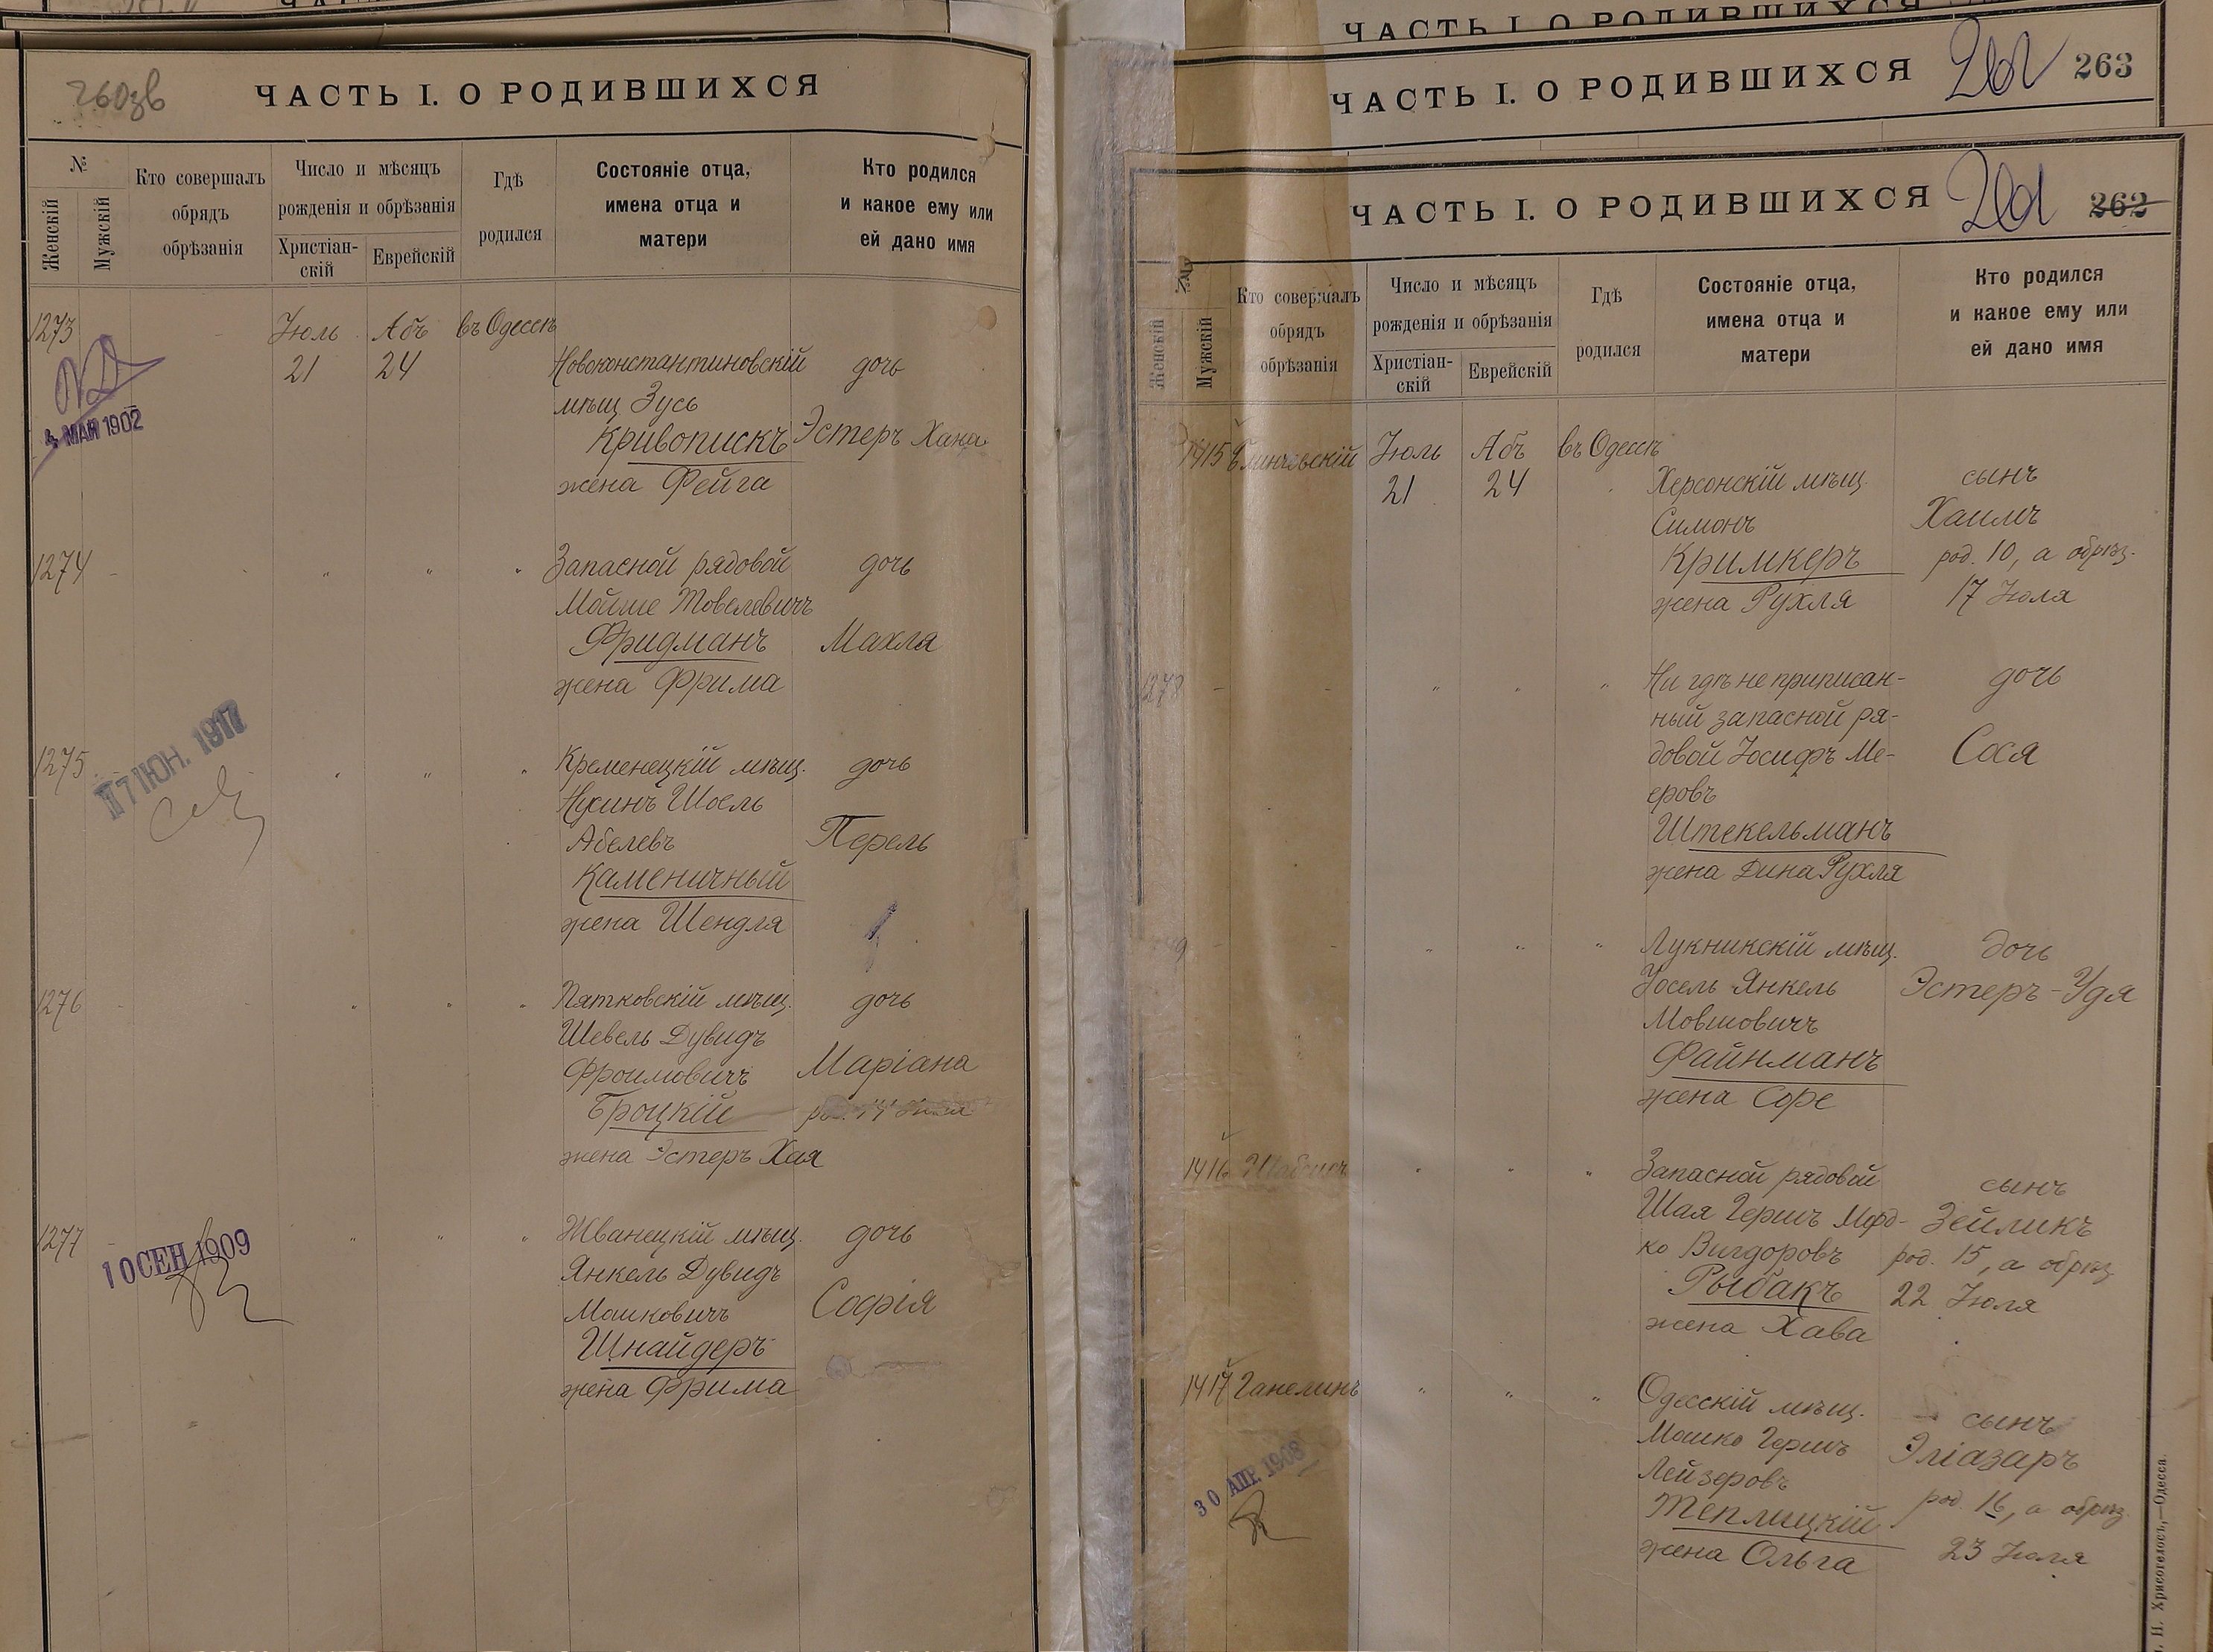 260зв
ЧАСТЬ I. О РОДИВШИХСЯ
№
Женскій
Мужскій
Кто совершалъ
обрядъ
обрѣзанія
Число и мѣсяцъ
рожденія и обрѣзанія
Христіан-
скій
Еврейскій
Гдѣ
родился
Состояніе отца,
имена отца и
матери
Кто родился
и какое ему или
ей дано имя
1273 Іюль Абъ въ Одессѣ
21 24 Новоконстантиновскій дочь
мѣщ Зусь
4 МАЯ 1902
Кривопискъ Эстеръ Хана
жена Фейга
1274 Запасной рядовой дочь
Мойше Товелевичъ
Фридманъ Махля
жена Фрима
1275 Кременецкій мѣщ. дочь
17 ІЮН. 1917
Нусинъ Шоель
Абелевъ Перель
Каменичный
жена Шендля
1276 Пятковскій мѣщ. дочь
Шевель Дувидъ
Фроимовичъ Маріана
Броцкій
жена Эстеръ Хая
1277 Жванецкій мѣщ. дочь
10 СЕН 1909
Янкель Дувидъ
Мошковичъ Софія
Шнайдеръ
жена Фрима
ЧАСТЬ I. О РОДИВШИХСЯ
ЧАСТЬ I. О РОДИВШИХСЯ 262 263
ЧАСТЬ I. О РОДИВШИХСЯ 261 262
Женскій
Мужскій
Кто совершалъ
обрядъ
обрѣзанія
Число и мѣсяцъ
рожденія и обрѣзанія
Христіан-
скій
Еврейскій
Гдѣ
родился
Состояніе отца,
имена отца и
матери
Кто родился
и какое ему или
ей дано имя
1415 Іюль Абъ въ Одессѣ
21 24 Херсонскій мѣщ. сынъ
Симонъ Хаимъ
Кримкеръ род. 10, а обрѣз.
жена Рухля 17 Іюля
1278 Ни гдѣ не приписан- дочь
ный запасной ря-
довой Іосифъ Ме- Сося
еровъ
Штекельманъ
жена Дина Рухля
9 Лукникскій мѣщ. дочь
Іосель Янкель Эстеръ-Удя
Мовшовичъ
Файнманъ
жена Соре
1416 Запасной рядовой сынъ
Шая Гершъ Морд- Зейликъ
ко Вигдоровъ род. 15, а обрѣз.
Рыбакъ 22 Іюля
жена Хава
1417 Ганелинъ Одесскій мѣщ. сынъ
Мошко Гершъ Эліазаръ
30 АПР. 1908
Лейзеровъ
Теплицкій род. 16, а обрѣз.
жена Ольга 23 Іюля
Хрисогелосъ,—Одесса.